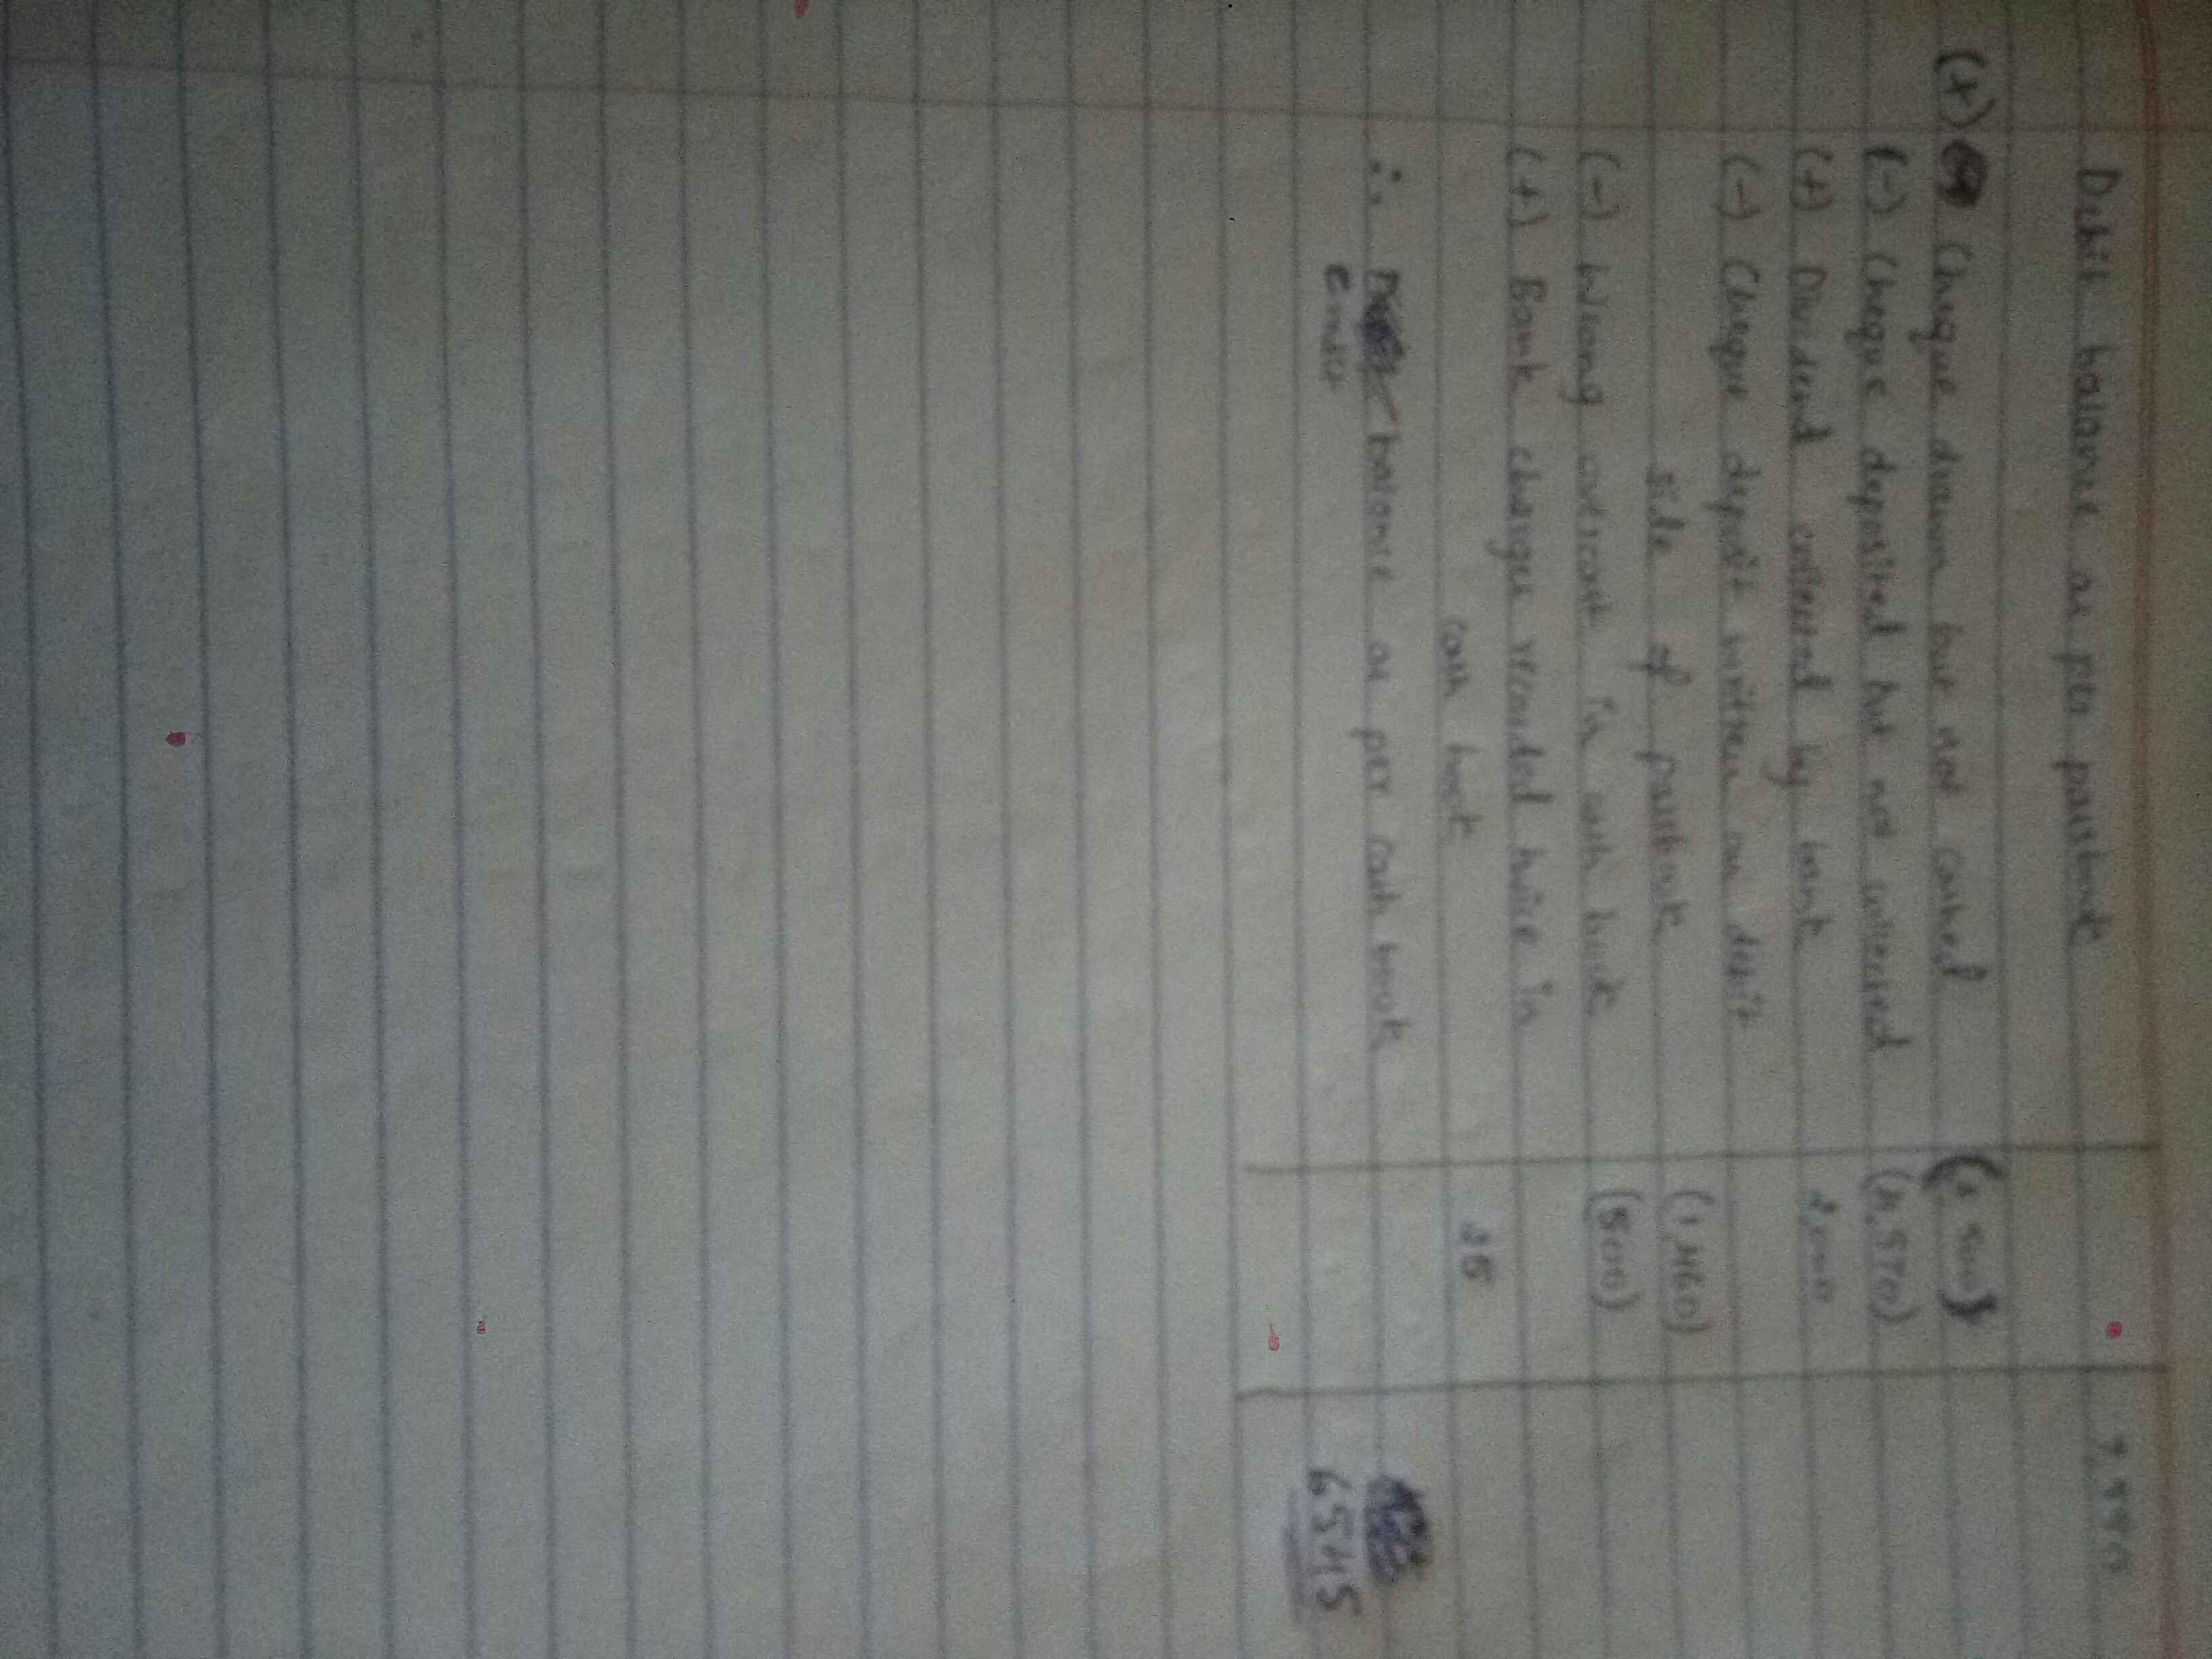 Debit balance as per passbook
(+) Cheque drawn but not cashed
(-) Cheque deposited but not collected (4,570)
(+) Dividend collected by bank 2,000
(-) Cheque deposit written on debit
side of passbook (1,460)
(-) Wrong overcast in cash book (500)
(+) Bank charges recorded twice in
cash book
∴ balance as per cash book 6545